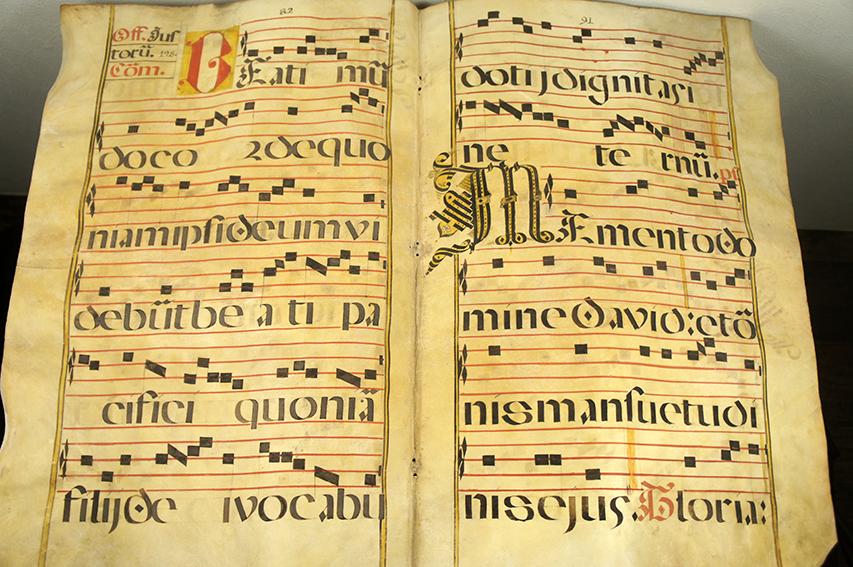 82
Off. Jus
torũ. 198.
Cõm.
BEati mũ
doco 2dequo
niamipsideumvi
debũtbe a ti pa
cifici quoniã
filijde ivocabũ
91
dotijdignitasi
ne te rnũ. ps
MEmentodo
mineDavid:etõ
nismansuetudi
nisejus. Gloria: